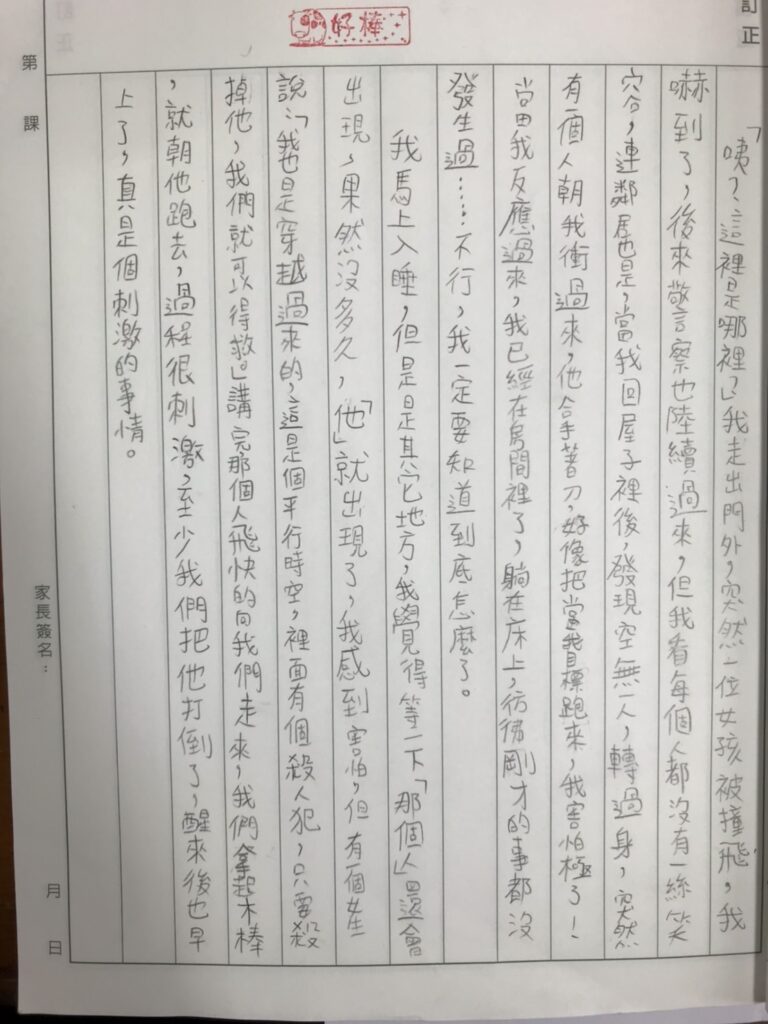 訂正
好棒
「咦？這裡是哪裡？」我走出門外，突然一位女孩被撞飛，我
嚇到了，後來警察也陸續過來，但我看每個人都沒有一絲笑
容，連鄰居也是，當我回屋子裡後，發現空無一人，轉過身，突然
有一個人朝我衝過來，他合手著刀，好像把當我目標跑來，我害怕極了！
當由我反應過來，我已經在房間裡了，躺在床上，彷彿剛才的事都沒
發生過……不行，我一定要知道到底怎麼了。
我馬上入睡，但是是其它地方，我覺得等一下「那個人」還會
出現，果然沒多久，「他」就出現了，我感到害怕，但有一個女生
說：「我也是穿越過來的，這是個平行時空，裡面有個殺人犯，只要殺
掉他，我們就可以得救。」講完那個人飛快的向我們走來，我們拿起木棒
，就朝他跑去，過程很刺激，至少我們把他打倒了，醒來後也早
上了，真是個刺激的事情。
第 課
家長簽名：
月 日